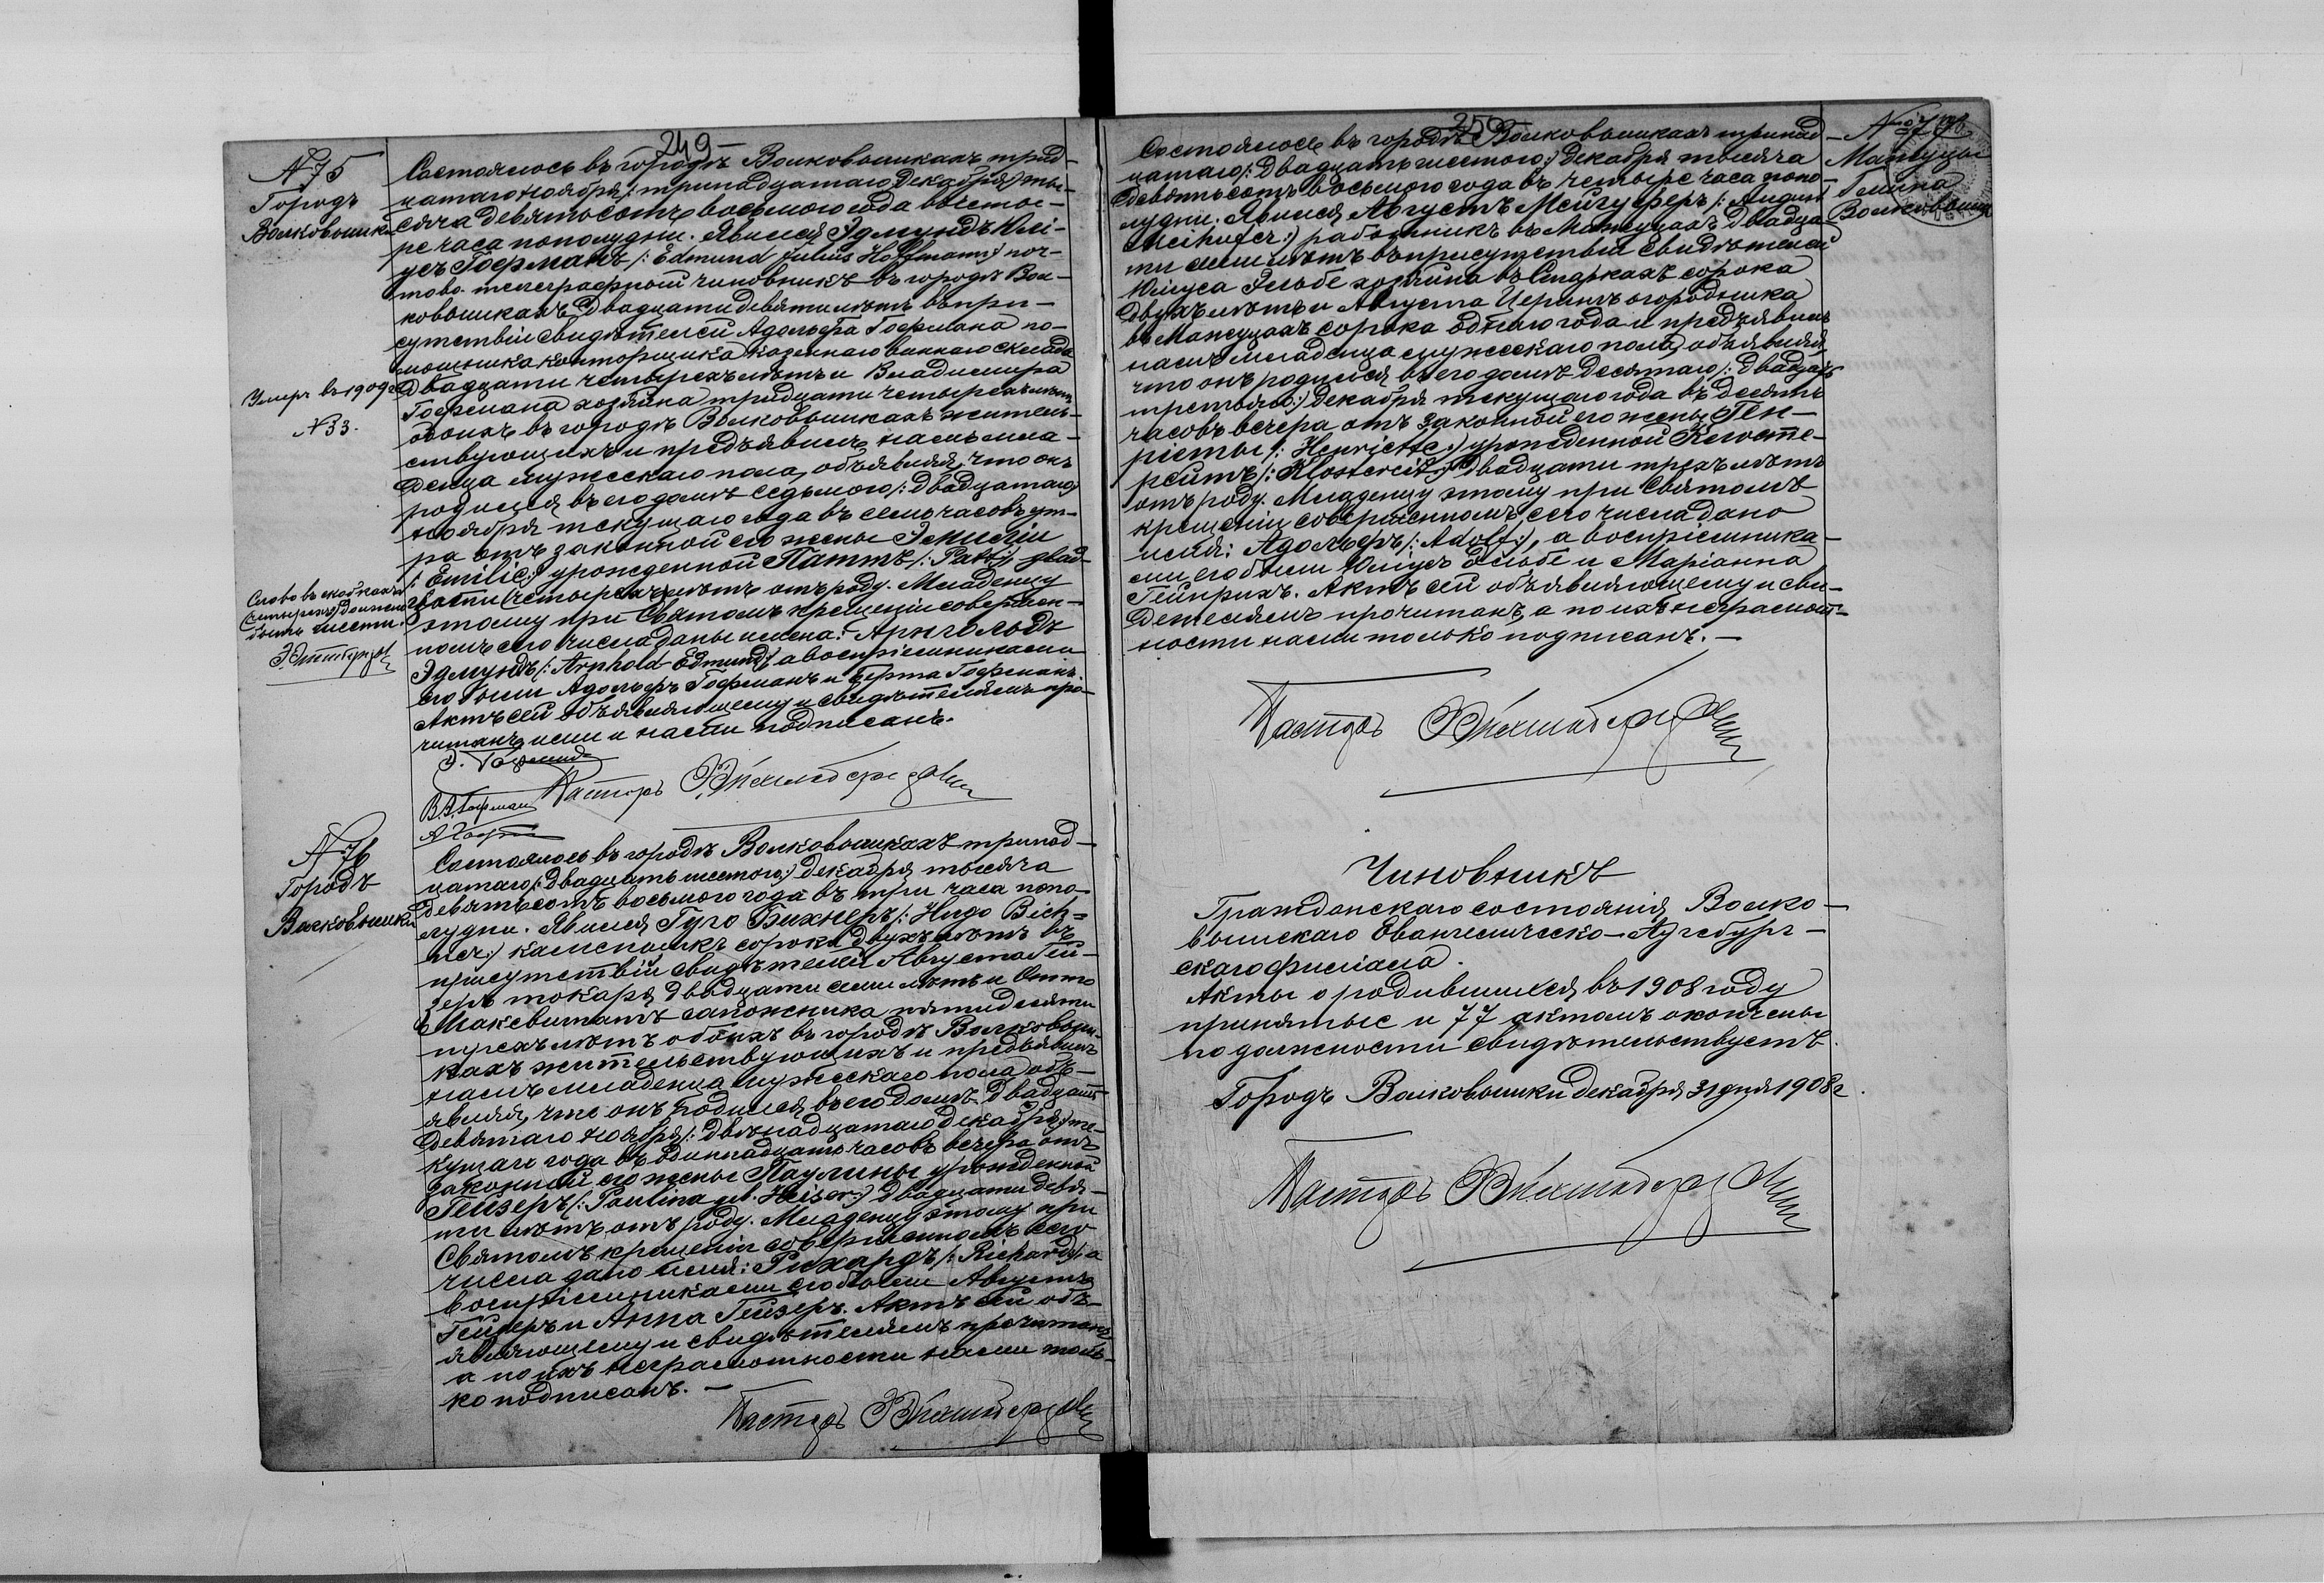 249
№ 75
Городъ
Волковышки
Состоялось въ городѣ Волковышкахъ трид-
цатаго ноября /: тринадцатаго декабря :/ ты-
сяча девятьсотъ восьмого года въ четы-
ре часа пополудни. Явился Эдмундъ Юлі-
усъ Гофманъ /: Edmund Julius Hoffmann :/ поч-
тово-телеграфный чиновникъ въ городѣ Вол-
ковышкахъ двадцати девяти лѣтъ въ при-
сутствіи свидѣтелей Адольфа Гофмана по-
мощника конторщика казеннаго виннаго склада
двадцати четырехъ лѣтъ и Владимира
Гофмана хозяина тридцати четырехъ лѣтъ
обоихъ въ городѣ Волковышкахъ житель-
ствующихъ и предъявилъ намъ мла-
денца мужескаго пола, объявляя, что онъ
родился въ его домѣ седьмого /: двадцатаго :/
ноября текущаго года въ семь часовъ ут-
ра отъ законной его жены Эмиліи
/: Emilie :/ урожденной Паттъ /: Patt :/ двад-
цати (четырехъ) лѣтъ отъ роду. Младенцу
этому при Святомъ крещеніи совершен-
номъ сего числа даны имена: Арнгольдъ
Эдмундъ /: Arnhold-Edmund :/, а воспріемниками
его были Адольфъ Гофманъ и Берта Гофманъ.
Актъ сей объявляющему и свидѣтелямъ про-
читанъ, ими и нами подписанъ.
Умеръ въ 1909 г.
№ 33.
Слово въ скобкахъ
(четырехъ) должно
быть шести.
Э. Гофманъ
В. А. Гофманъ
А. Гофманъ
Пасторъ
№ 76
Городъ
Волковышки
Состоялось въ городѣ Волковышкахъ тринад-
цатаго /: двадцать шестого :/ декабря тысяча
девятьсотъ восьмого года въ три часа попо-
лудни. Явился Гуго Бихнеръ /: Hugo Bich=
ner :/ каменщикъ сорока двухъ лѣтъ въ
присутствіи свидѣтелей Августа Гей-
зеръ токаря двадцати семи лѣтъ и Отто
Макевитатъ сапожника пятидесяти
трехъ лѣтъ обоихъ въ городѣ Волковыш-
кахъ жительствующихъ и предъявилъ
намъ младенца мужескаго пола, объ-
являя, что онъ родился въ его домѣ двадцать
девятаго ноября /: двѣнадцатаго декабря :/ те-
кущаго года въ одиннадцать часовъ вечера отъ
законной его жены Паулины урожденной
Гейзеръ /: Paulina geb. Heiser :/ двадцати девя-
ти лѣтъ отъ роду. Младенцу этому при
Святомъ крещеніи совершенномъ сего
числа дано имя: Рихардъ /: Richard :/, а
воспріемниками его были Августъ
Гейзеръ и Анна Гейзеръ. Актъ сей объ-
являющему и свидѣтелямъ прочитанъ,
а по ихъ неграмотности нами толь-
ко подписанъ. —
Пасторъ
250
№ 77
Мажуцы
Гмина
Волковышки
Состоялось въ городѣ Волковышкахъ тринад-
цатаго /: двадцать шестого :/ декабря тысяча
девятьсотъ восьмого года въ четыре часа попо-
лудни. Явился Августъ Мейгуферъ /: August
Meihufer :/ работникъ въ Мажуцахъ двадца-
ти семи лѣтъ въ присутствіи свидѣтелей
Юліуса Эльбе хозяина въ сорока
двухъ лѣтъ и Августа огородника
въ Мажуцахъ сорока одного года и предъявилъ
намъ младенца мужескаго пола, объявляя,
что онъ родился въ его домѣ десятаго /: двадцать
третьяго :/ декабря текущаго года въ десять
часовъ вечера отъ законной его жены Ген-
ріеты /: Henriette :/ урожденной Клосте-
рейтъ /: Klostereit :/ двадцати трехъ лѣтъ
отъ роду. Младенцу этому при Святомъ
крещеніи совершенномъ сего числа дано
имя: Адольфъ /: Adolf :/, а воспріемника-
ми его были Юліусъ Эльбе и Маріанна
Гейнрихъ. Актъ сей объявляющему и сви-
детелямъ прочитанъ, а по ихъ неграмот-
ности нами только подписанъ. —
Пасторъ
Чиновникъ
Гражданскаго состоянія Волко-
вышскаго Евангелическо-Аугсбург-
скаго филіала.
Акты о родившихся въ 1908 году
принятые и 77 актомъ окончены
по должности свидѣтельствуетъ.
Городъ Волковышки декабря 31 дня 1908 г.
Пасторъ